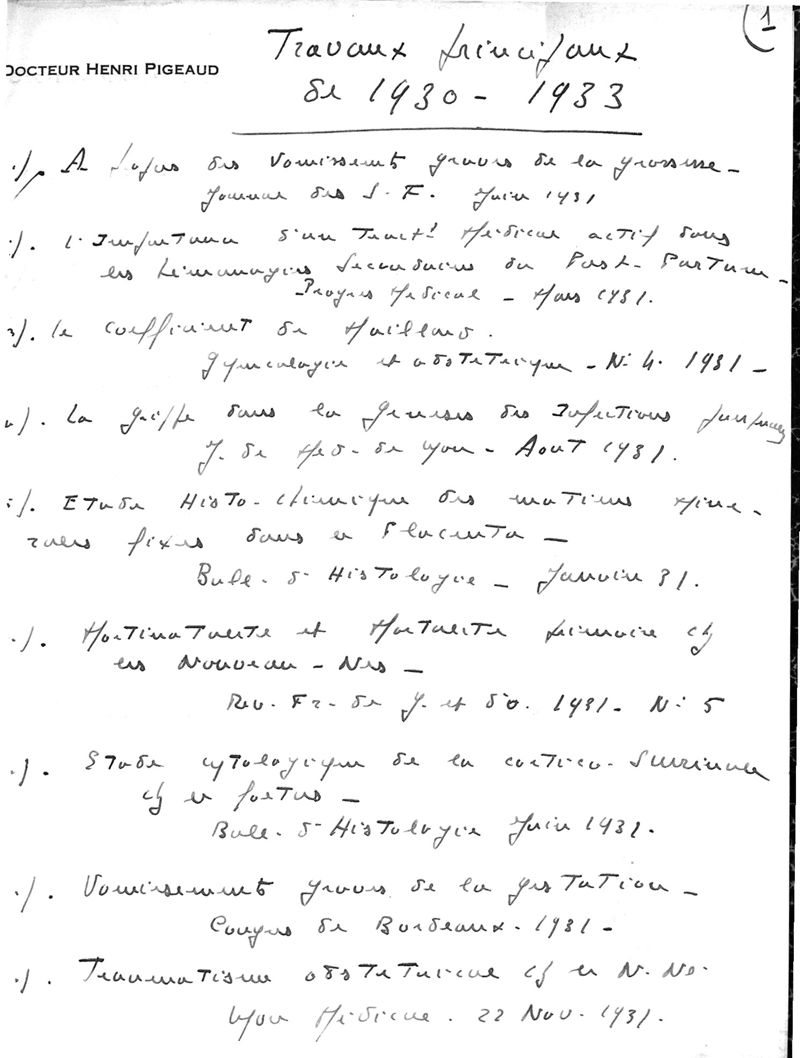 (1
Travaux principaux
DOCTEUR HENRI PIGEAUD
de 1930 - 1933
/. A propos des Vomissements graves de la grossesse -
Journal des S. F. Juin 1931
/. L'Importance d'un Trait! Médical actif dans
les Hémorragies Secondaires du Post-Partum -
Progrès Médical - Mars 1931.
3/. Le coefficient de Maillard.
Gynécologie et obstétrique - No 4. 1931 -
/. La Greffe dans la Genèse des Infections puerpérales
J. de Med. de Lyon - Aout 1931.
/. Etude Histo-chimique des matières Miné-
rales fixes dans le Placenta -
Bull. d'Histologie - Janvier 31.
/. Mortinatalité et Mortalité primaire ch
les Nouveau-Nés -
Rev. Fr. de G. et d'O. 1931 - No 5
/. Etude cytologique de la cortico-Surrénale
ch le foetus -
Bull. d'Histologie Juin 1931.
/. Vomissements graves de la gestation -
Congrès de Bordeaux. 1931 -
/. Traumatisme obstétrical ch le N. Né.
Lyon Médical. 22 Nov. 1931.